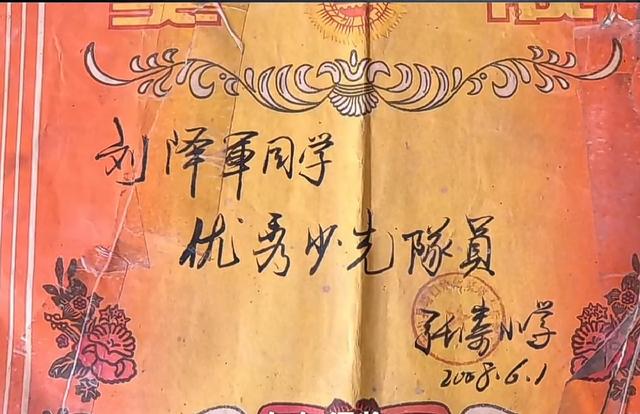 刘泽軍同学
优秀少先隊員
张小学
2008.6.1